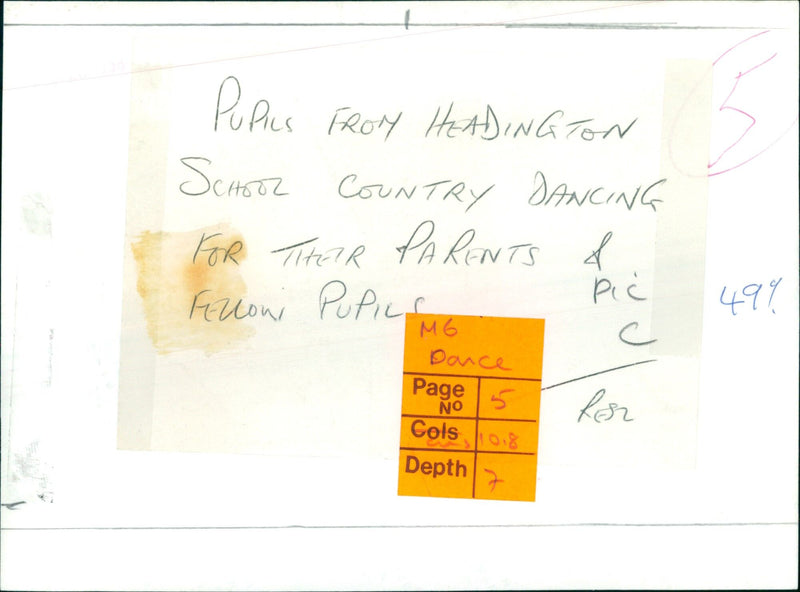 5
PUPILS FROM HEADINGTON
SCHOOL COUNTRY DANCING
FOR THEIR PARENTS &
FELLOW PUPILS
PIC
C
M6
Dance
Page No 5
Cols cms 10.8
Depth 7